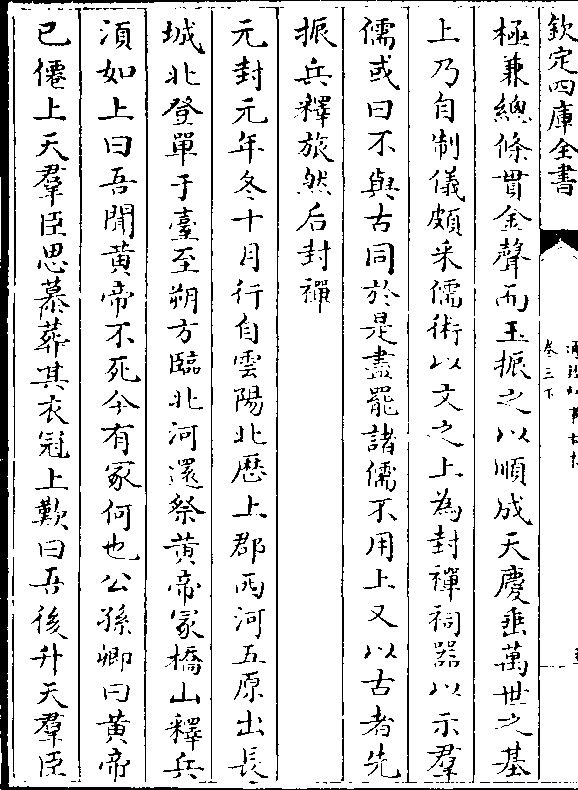 欽定四庫全書
卷三下
極兼總條貫金聲而玉振之以順成天慶垂萬世之基
上乃自制儀頗采儒術以文之上為封禪祠器以示羣
儒或曰不與古同於是盡罷諸儒不用上又以古者先
振兵釋旅然后封禪
元封元年冬十月行自雲陽北歷上郡西河五原出長
城北登單于臺至朔方臨北河還祭黄帝冢橋山釋兵
湏如上曰吾聞黄帝不死今有冢何也公孫卿曰黄帝
已僊上天羣臣思慕葬其衣冠上歎曰吾後升天羣臣